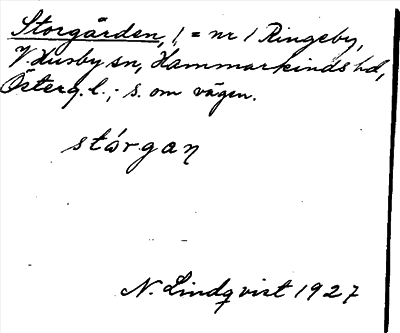 Storgården, /, = nr 1 Ringeby,
V Husby sn, Hammarkinds hd,
Österg. l.; s. om vägen.
stórgan
N. Lindqvist 1927